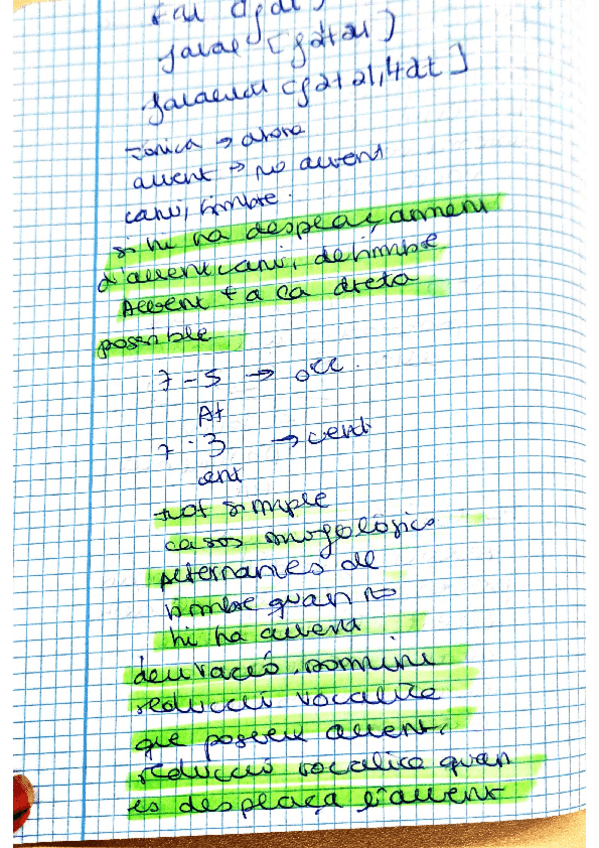 tònica → àtona
accent → no accent
canvi, timbre.
si hi ha desplaçament
d'accent canvi, de timbre
Accent + a la dreta
possible
7 - 5 → occ.
At
7 - 3 → cent
ant
tot simple
casos morfològics
alternances de
timbre quan no
hi ha accent
derivació, domini
reducció vocalica
que posseeu accent,
reducció vocalica quan
es desplaça l'accent